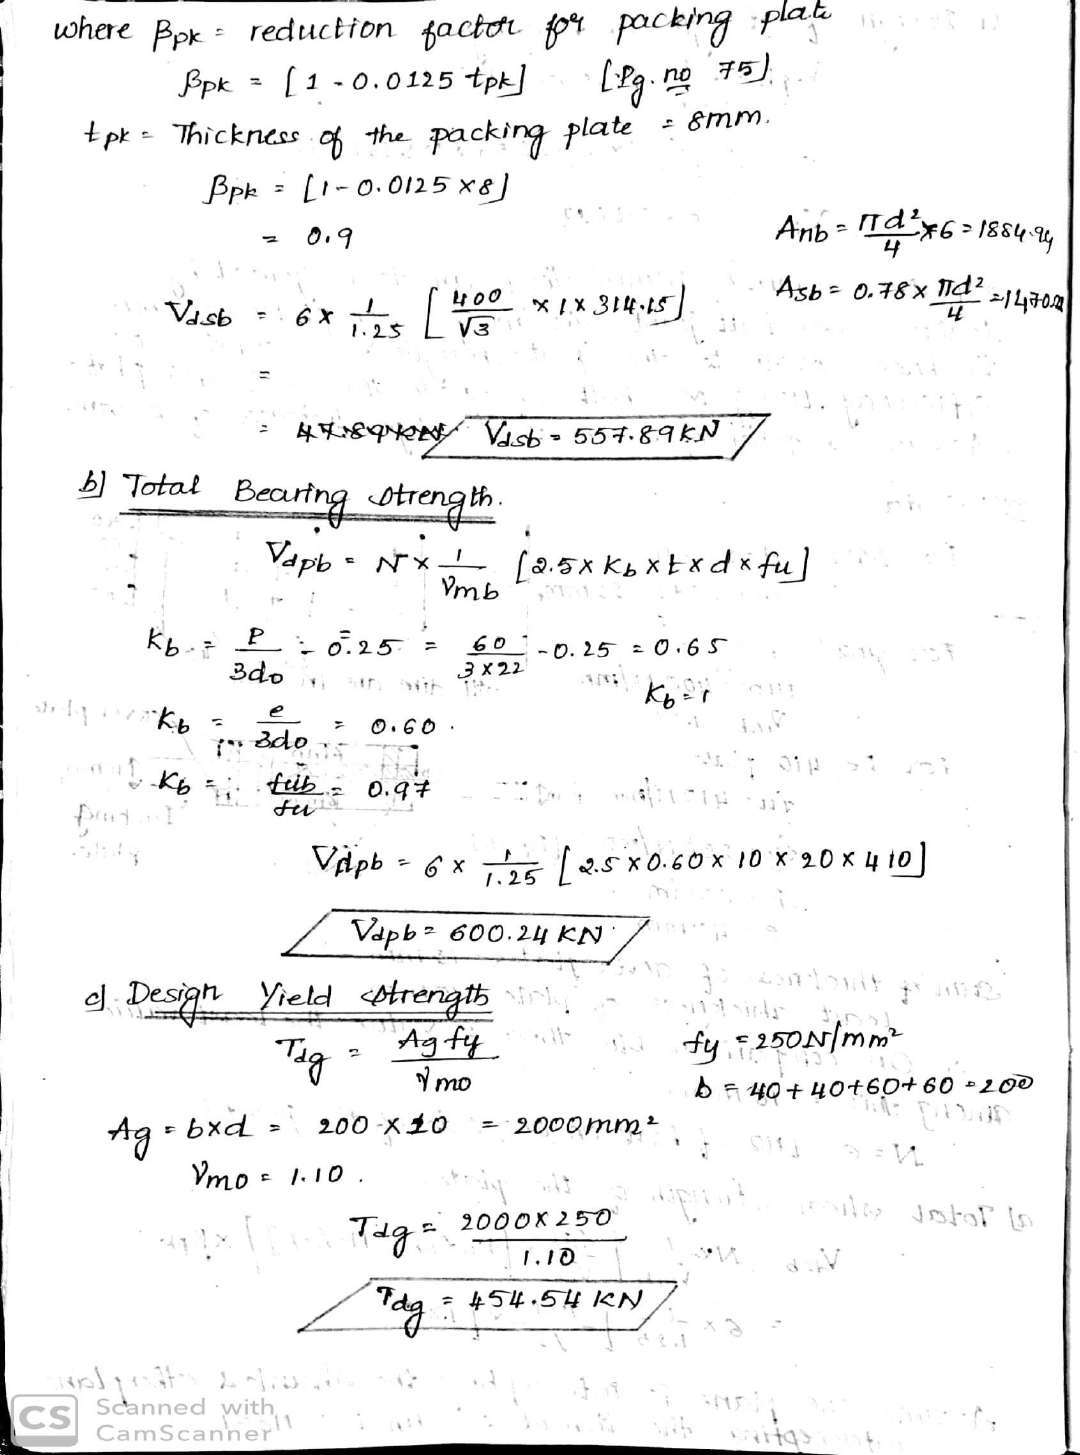 where βpk = reduction factor for packing plate
βpk = [1 - 0.0125 tpk] [Pg. no 75]
tpk = Thickness of the packing plate = 8mm.
βpk = [1 - 0.0125 x 8]
= 0.9
Anb = πd²/4 x 6 = 1884.94
Asb = 0.78 x πd²/4 = 1470.
Vdsb = 6 x 1/1.25 [400/√3 x 1 x 314.15]
=
= Vdsb = 557.89 KN
b] Total Bearing Strength.
Vdpb = N x 1/γmb [2.5 x Kb x t x d x fu]
Kb = P/3do - 0.25 = 60/3x22 - 0.25 = 0.65
Kb = 1
Kb = e/3do = 0.60.
Kb = fub/fu = 0.97
Vdpb = 6 x 1/1.25 [2.5 x 0.60 x 10 x 20 x 410]
Vdpb = 600.24 KN
c] Design Yield Strength
Tdg = Ag fy/γmo fy = 250N/mm²
b = 40 + 40 + 60 + 60 = 200
Ag = bxd = 200 x 10 = 2000mm²
γmo = 1.10.
Tdg = 2000 x 250/1.10
Tdg = 454.54 KN
CS Scanned with
CamScanner